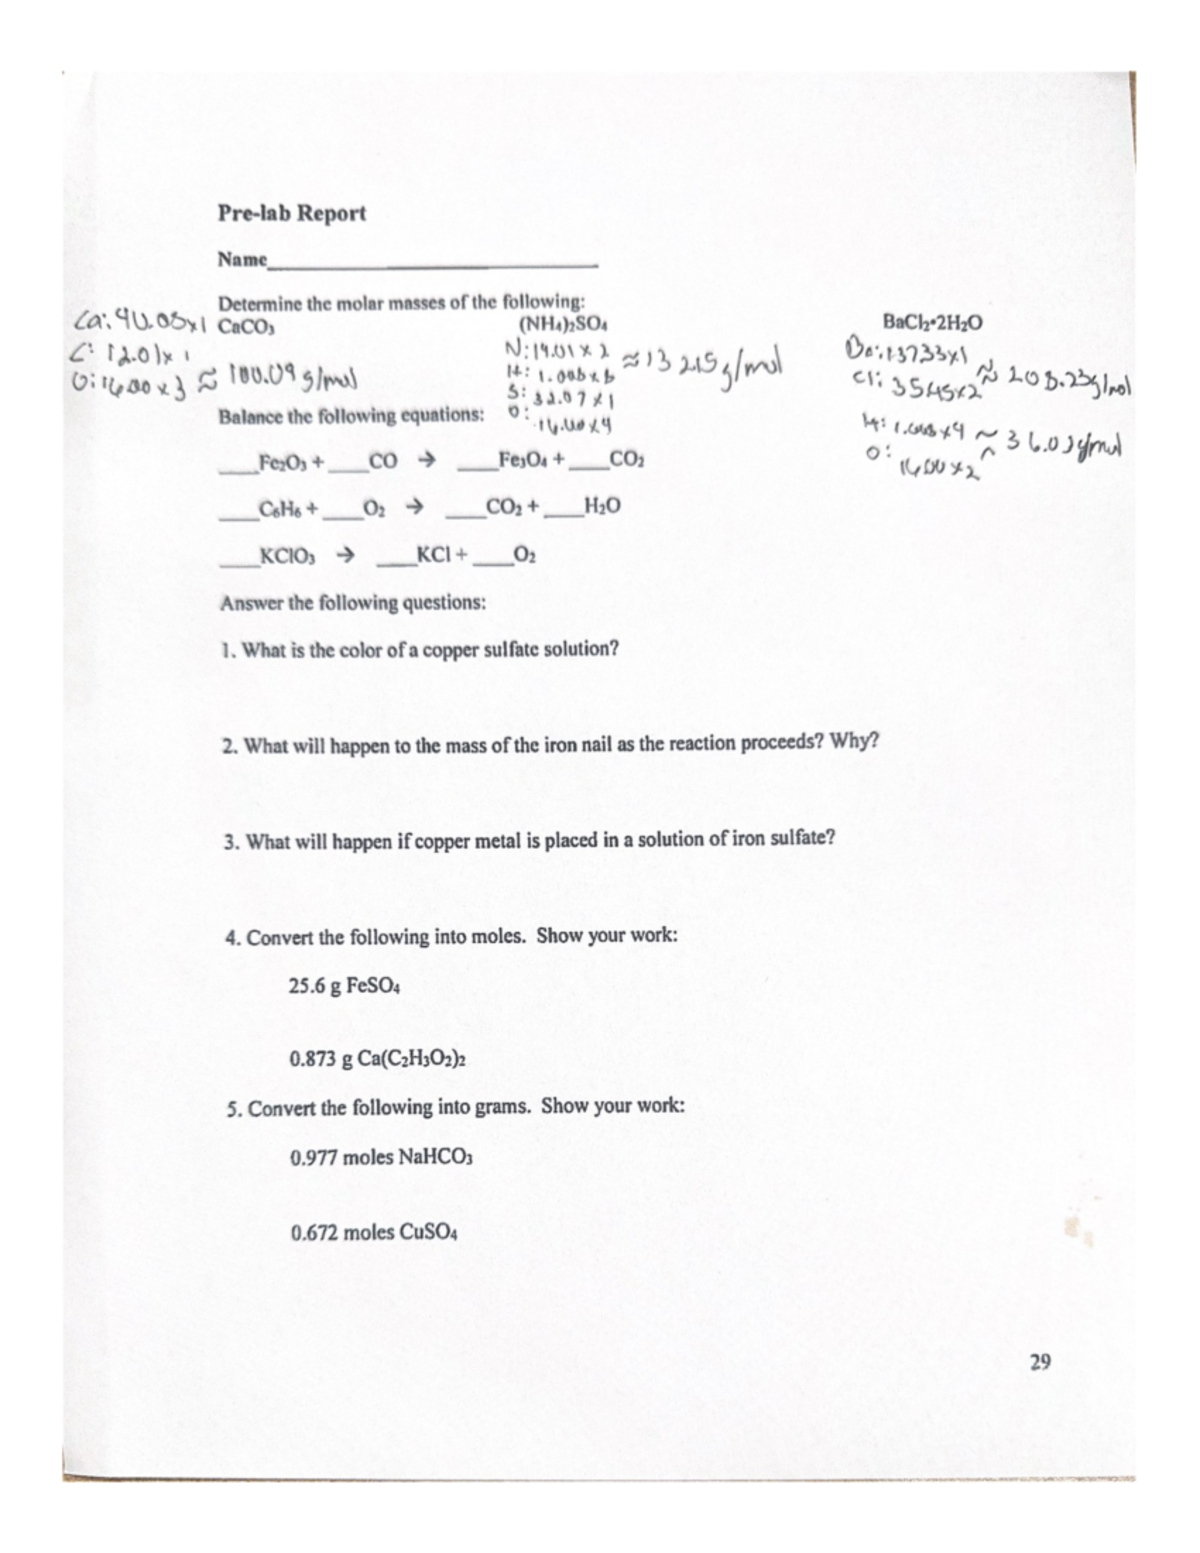 Pre-lab Report
Name
Determine the molar masses of the following:
CaCO₃ (NH₄)₂SO₄ BaCl₂•2H₂O
Ca: 40.08x1
C: 12.01x1
O: 16.00x3 ≈ 100.09 g/mol
N: 14.01 x 2 ≈ 132.15 g/mol
H: 1.008x8
S: 32.07x1
O: 16.00x4
Ba: 137.33x1
Cl: 35.45x2 ≈ 208.23g/mol
H: 1.008x4 ≈ 36.03g/mol
O: 16.00x2
Balance the following equations:
____Fe₂O₃ + ____CO → ____Fe₃O₄ + ____CO₂
____C₆H₆ + ____O₂ → ____CO₂ + ____H₂O
____KClO₃ → ____KCl + ____O₂
Answer the following questions:
1. What is the color of a copper sulfate solution?
2. What will happen to the mass of the iron nail as the reaction proceeds? Why?
3. What will happen if copper metal is placed in a solution of iron sulfate?
4. Convert the following into moles. Show your work:
25.6 g FeSO₄
0.873 g Ca(C₂H₃O₂)₂
5. Convert the following into grams. Show your work:
0.977 moles NaHCO₃
0.672 moles CuSO₄
29